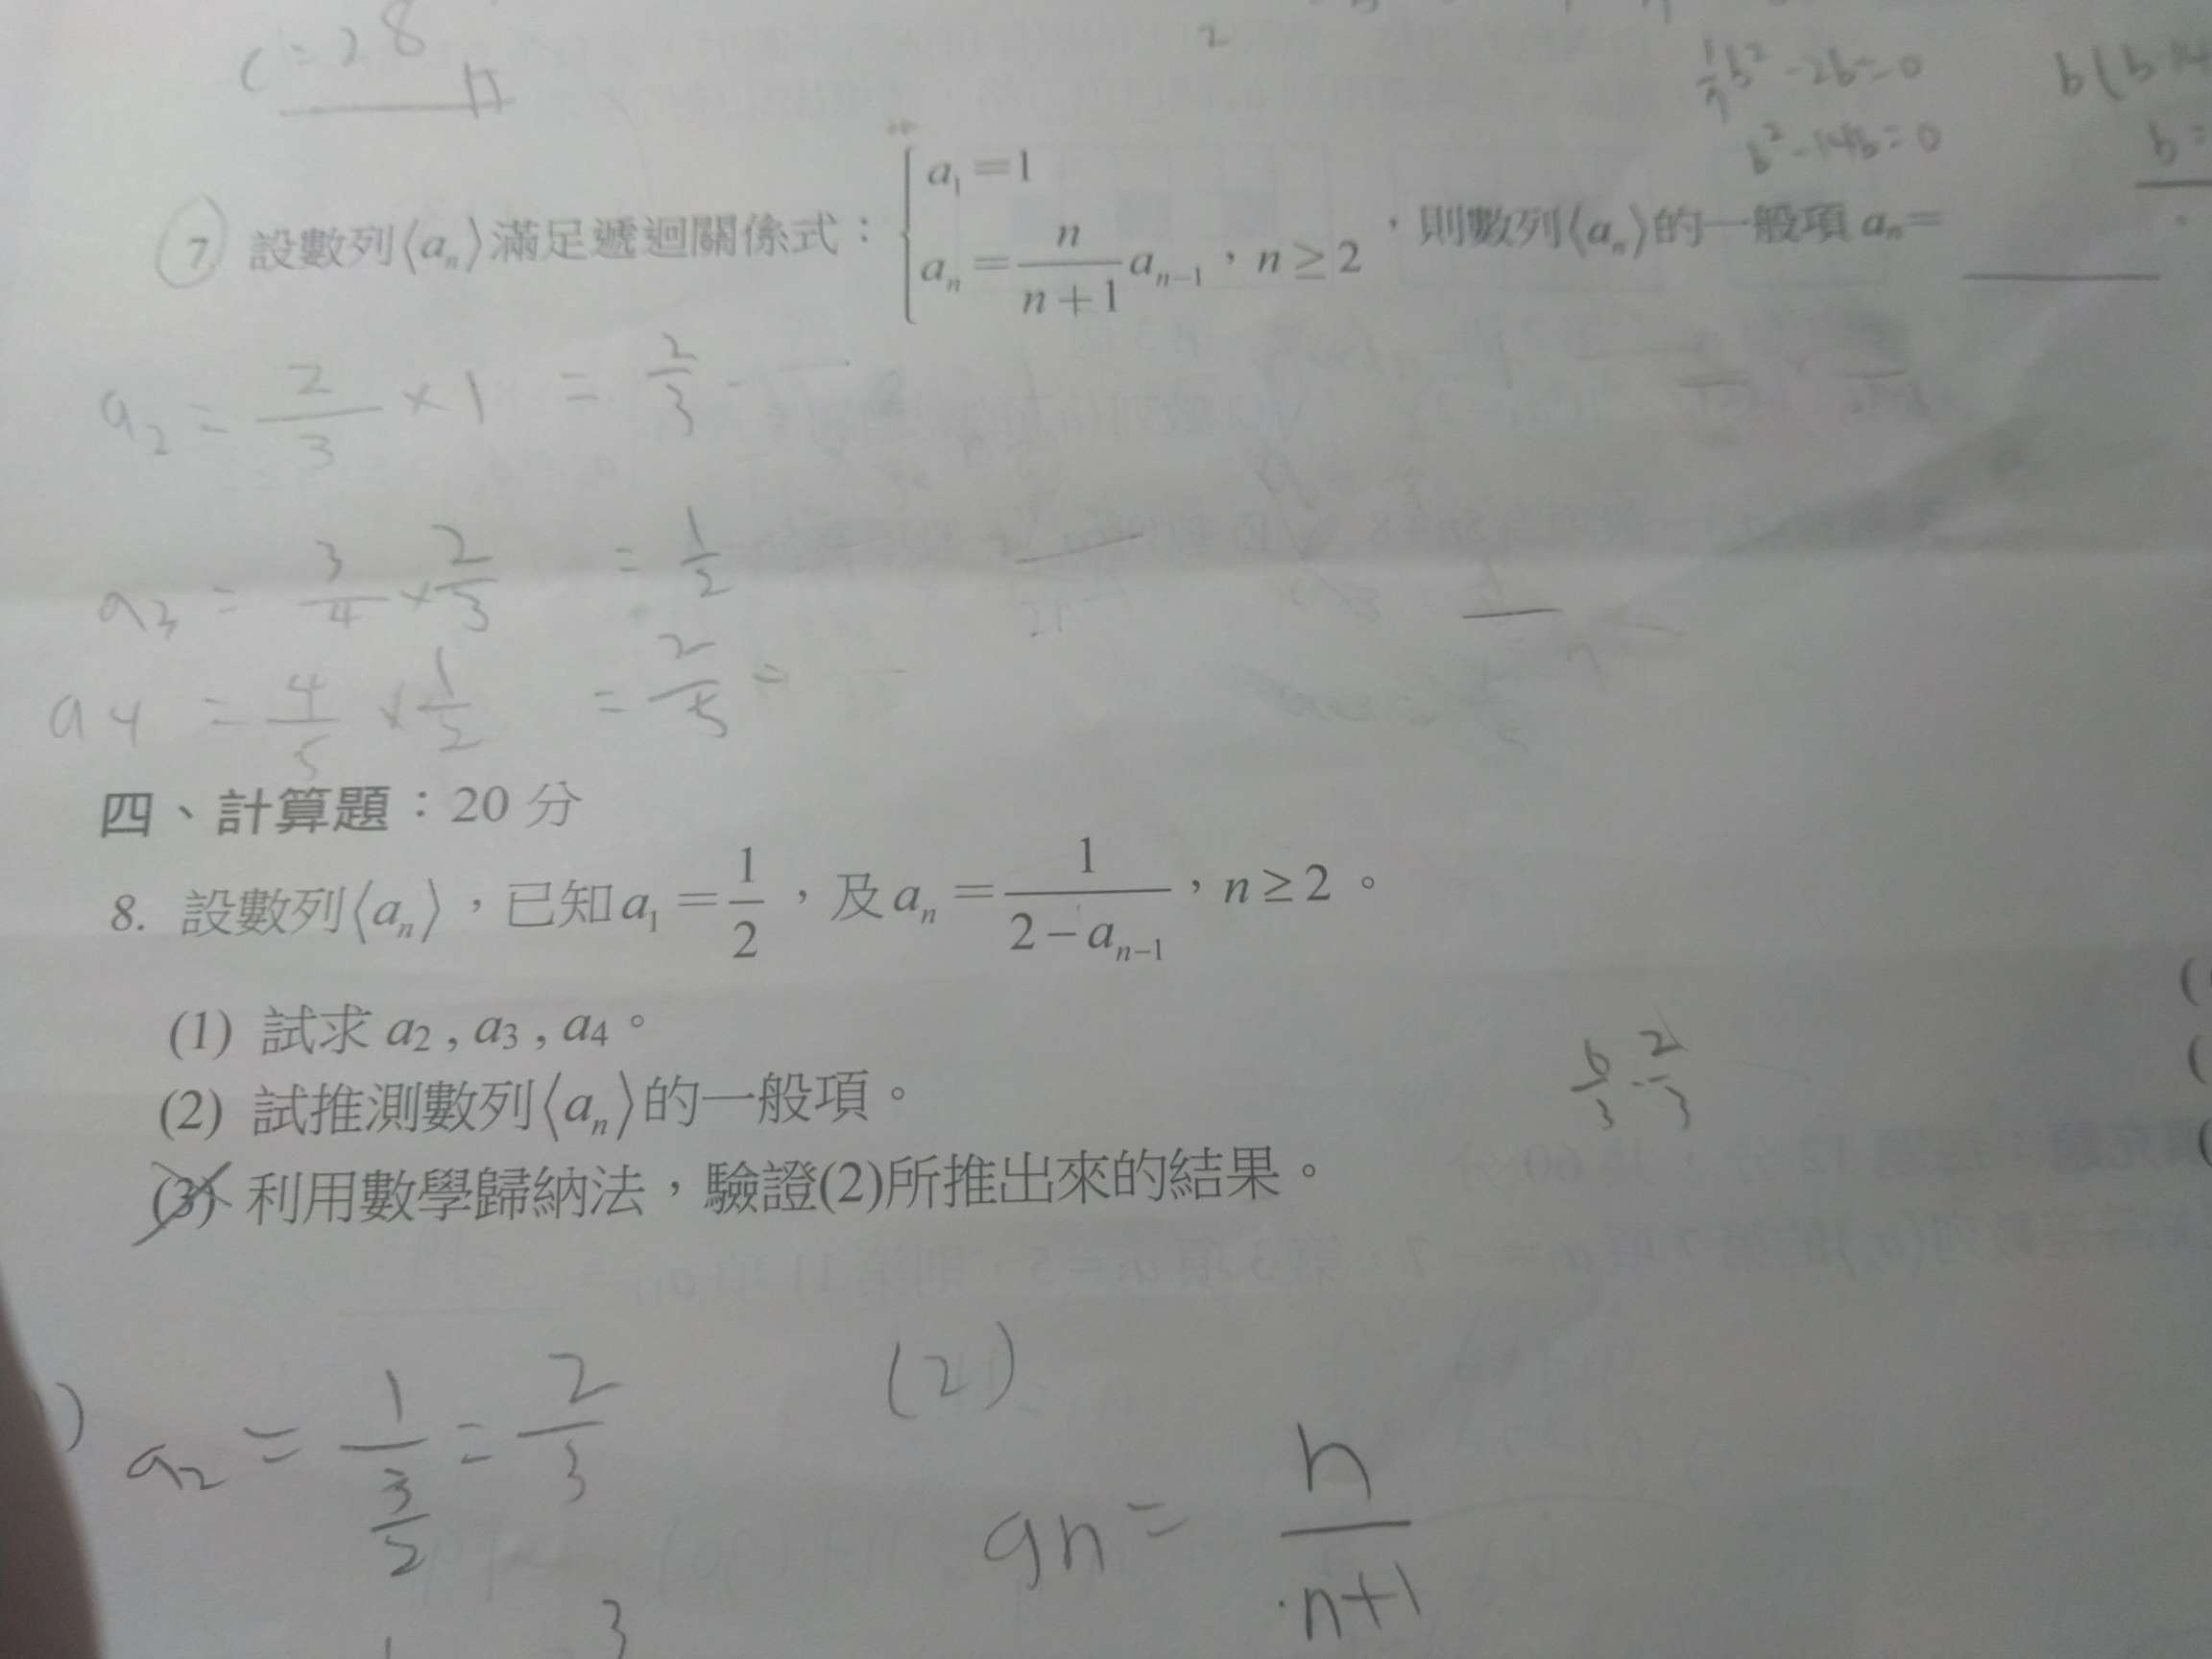 c=28
1/7 b² - 2b = 0
b² - 14b = 0
b =
7 設數列⟨aₙ⟩滿足遞迴關係式：{ a₁=1
aₙ = n/(n+1) aₙ₋₁，n≥2 ，則數列⟨aₙ⟩的一般項 aₙ=
a₂ = 2/3 × 1 = 2/3
a₃ = 3/4 × 2/3 = 1/2
a4 = 4/5 × 1/2 = 2/5 =
四、計算題：20 分
8. 設數列⟨aₙ⟩，已知 a₁ = 1/2，及 aₙ = 1/(2-aₙ₋₁)，n≥2。
(1) 試求 a₂ , a₃ , a₄。
(2) 試推測數列⟨aₙ⟩的一般項。
6/3 - 2/3
(3) 利用數學歸納法，驗證(2)所推出來的結果。
) a₂ = 1/(3/2) = 2/3
(2)
an = n/(n+1)
1 3